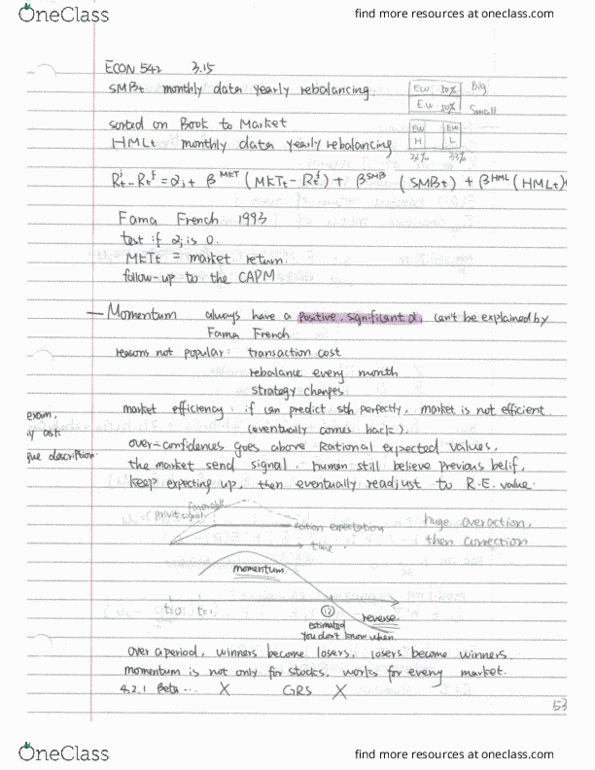 OneClass
find more resources at oneclass.com
ECON 542 3.15
SMBt monthly data yearly rebalancing
EW 50% Big
EW 50% Small
sorted on Book to Market
HMLt monthly data yearly rebalancing
EW EW
H L
Rᵢt - Rᶠt = αᵢ + βᴹᴷᵀ (MKTt - Rᶠt) + βˢᴹᴮ (SMBt) + βᴴᴹᴸ (HMLt)
Fama French 1993
test if αᵢ is 0.
MKTt = market return.
follow-up to the CAPM
— Momentum always have a positive, significant α, can't be explained by
Fama French
reasons not popular: transaction cost
rebalance every month
strategy changes
market efficiency: if can predict sth perfectly, market is not efficient.
exam. (eventually comes back).
ask over-confidences goes above Rational expected values,
description the market send signal. human still believe previous belif,
keep expecting up, then eventually readjust to R.E. value.
favorable
expectation huge overaction,
time. then correction
momentum
t=0 t=1
12 reverse.
estimated
You don't know when.
over a period, winners become losers, losers become winners
momentum is not only for stocks, works for every market.
4.2.1 Beta ... X GRS X
53
OneClass
find more resources at oneclass.com